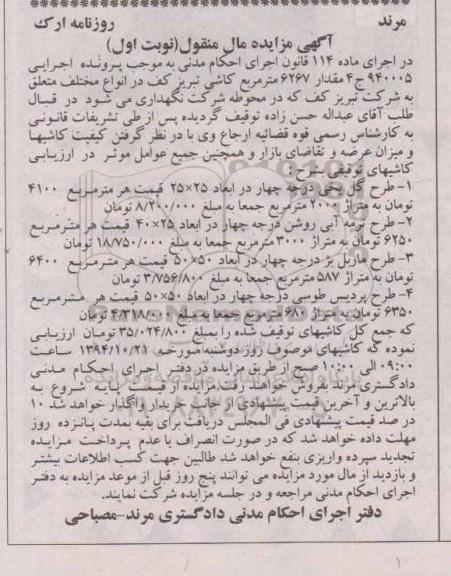 مرند
روزنامه ارک
آگهی مزایده مال منقول(نوبت اول)
در اجرای ماده ۱۱۴ قانون اجرای احکام مدنی به موجب پرونده اجرایی
۹۴۰۰۰۵ ج۴ مقدار ۶۲۶۷ مترمربع کاشی تبریز کف در انواع مختلف متعلق
به شرکت تبریز کف که در محوطه شرکت نگهداری می شود در قبال
طلب آقای عبداله حسن زاده توقیف گردیده پس از طی تشریفات قانونی
به کارشناس رسمی قوه قضائیه ارجاع وی با در نظر گرفتن کیفیت کاشیها
و میزان عرضه و تقاضای بازار و همچنین جمیع عوامل موثر در ارزیابی
کاشیهای توقیفی بشرح
۱- طرح گل یخی درجه چهار در ابعاد ۲۵×۲۵ قیمت هر مترمربع ۴۱۰۰
تومان به متراژ ۲۰۰۰ مترمربع جمعا به مبلغ ۸/۲۰۰/۰۰۰ تومان
۲-طرح ترمه آبی روشن درجه چهار در ابعاد ۲۵×۴۰ قیمت هر مترمربع
۶۲۵۰ تومان به متراژ ۳۰۰۰ مترمربع جمعا به مبلغ ۱۸/۷۵۰/۰۰۰ تومان
۳-طرح ماربل بژ درجه چهار در ابعاد ۵۰×۵۰ قیمت هر مترمربع ۶۴۰۰
تومان به متراژ ۵۸۷ مترمربع جمعا به مبلغ ۳/۷۵۶/۸۰۰ تومان
۴-طرح پردیس طوسی درجه چهار در ابعاد ۵۰×۵۰ قیمت هر مترمربع
۶۳۵۰ تومان به متراژ ۶۸۰ مترمربع جمعا به مبلغ ۴/۳۱۸/۰۰۰ تومان
که جمع کل کاشیهای توقیف شده را بمبلغ ۳۵/۰۲۴/۸۰۰ تومان ارزیابی
نموده که کاشیهای موصوف روز دوشنبه مورخه ۱۳۹۴/۱۰/۲۱ ساعت
۰۹:۰۰ الی ۱۰:۰۰ صبح از طریق مزایده در دفتر اجرای احکام مدنی
دادگستری مرند بفروش خواهند رفت.مزایده از قیمت پایه شروع به
بالاترین و آخرین قیمت پیشنهادی از جانب خریدار واگذار خواهد شد ۱۰
در صد قیمت پیشنهادی فی المجلس دریافت برای بقیه بمدت پانزده روز
مهلت داده خواهد شد که در صورت انصراف یا عدم پرداخت مزایده
تجدید سپرده واریزی بنفع خواهد شد طالبین جهت کسب اطلاعات بیشتر
و بازدید از مال مورد مزایده می توانند پنج روز قبل از موعد مزایده به دفتر
اجرای احکام مدنی مراجعه و در جلسه مزایده شرکت نمایند.
دفتر اجرای احکام مدنی دادگستری مرند-مصباحی